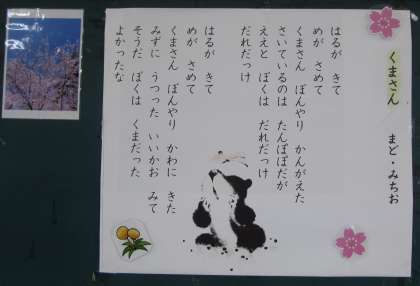 くまさん／まど・みちお
はるが きて
めが さめて
くまさん ぼんやり かんがえた
さいているのは たんぽぽだが
ええと ぼくは だれだっけ
だれだっけ
はるが きて
めが さめて
くまさん ぼんやり かわに きた
みずに うつった いいかお みて
そうだ ぼくは くまだった
よかったな